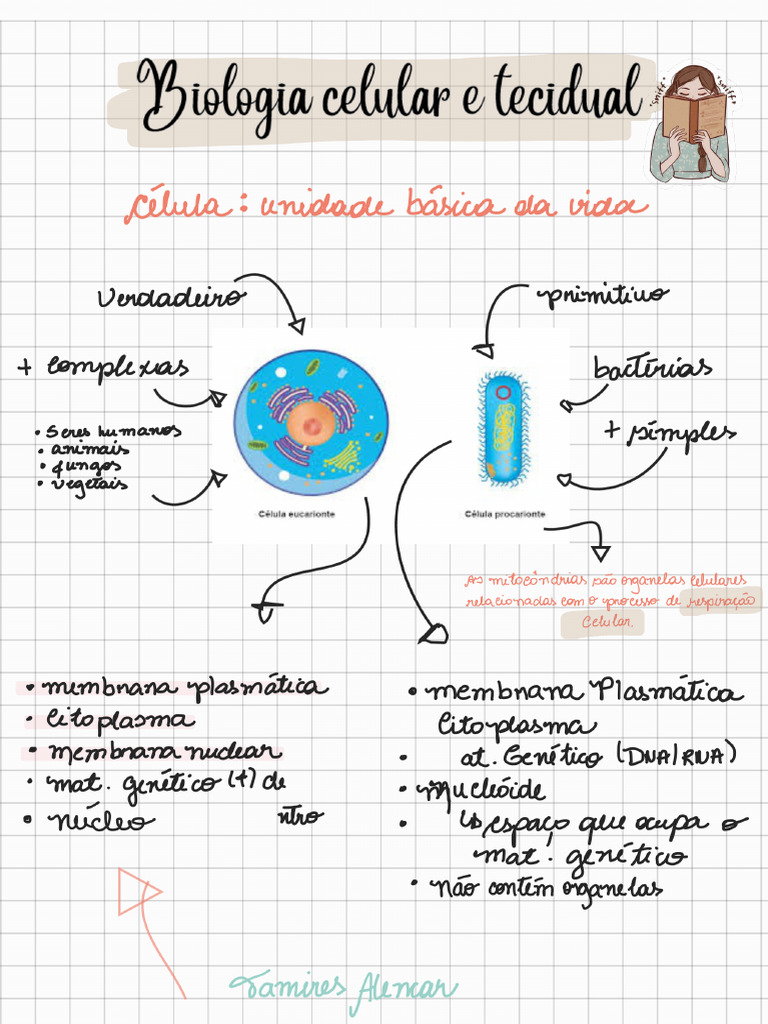 Biologia celular e tecidual
*sniff* *sniff*
Célula: unidade básica da vida
verdadeiro
primitivo
+ complexas
bactérias
• Seres humanos
• animais
• fungos
• vegetais
+ simples
Célula eucarionte
Célula procarionte
As mitocôndrias são organelas celulares
relacionadas com o processo de respiração
celular.
• membrana plasmática
• citoplasma
• membrana nuclear
• mat. genético (+) de
ntro
• núcleo
• membrana Plasmática
citoplasma
• at. Genético (DNA/RNA)
• nucleóide
• ↳ espaço que ocupa o
mat. genético
• não contém organelas
Tamires Alencar